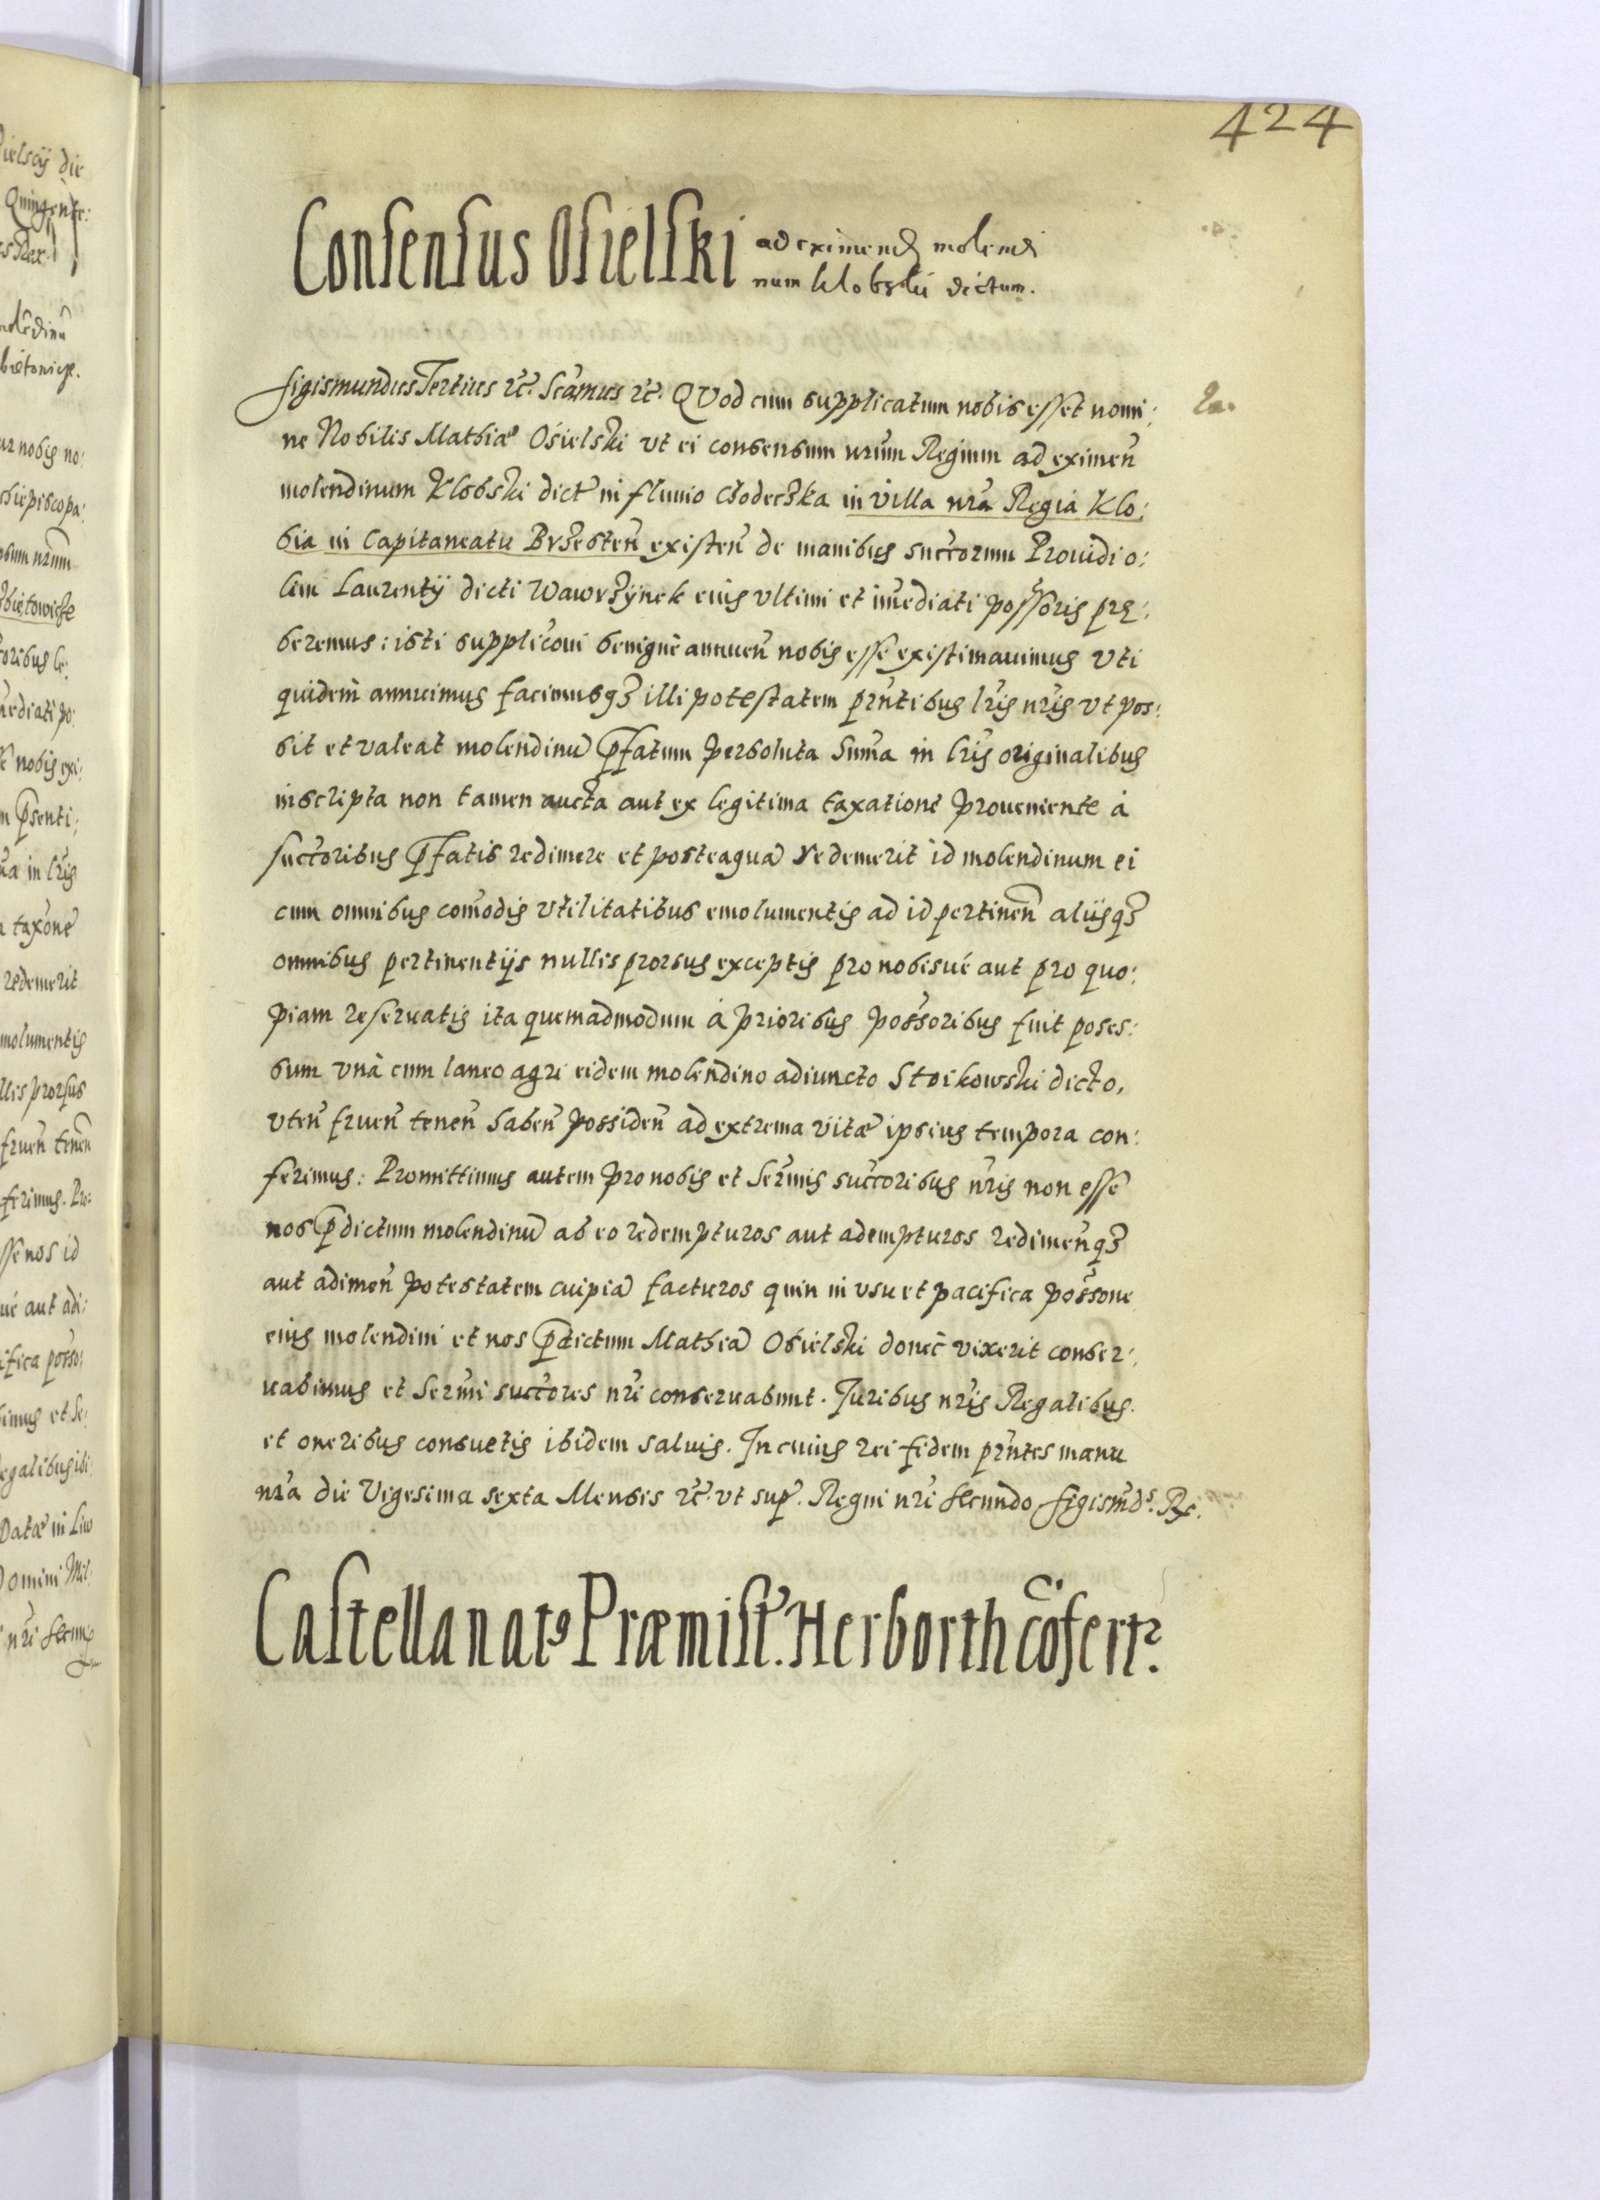 424
Consensus Osielski ad eximend molendi
num Klobski dictum.
Sigismundus Tertius etc. Scamus etc. QVod cum supplicatum nobis esset nomi:
ne Nobilis Mathiæ Osielski vt ei consensum nrum Regium ad eximen
molendinum Klobski dict in fluuio Chodeczka in villa nra Regia Klo:
bia in Capitaneatu Brzesten existen de manibus succorum Prouidi o:
lim Laurentÿ dicti Wawrzÿnek eius vltimi et imediati possoris prę:
beremus: isti suppliconi benignè annuen nobis esse existimauimus Vti
quidem annuimus facimusqз illi potestatem pruntibus lris nris vt pos:
sit et valeat molendinu pfatum persoluta suma in lris originalibus
inscripta non tamen aucta aut ex legitima taxatione proueniente à
succoribus pfatis redimere et posteaqua redemerit id molendinum ei
cum omnibus comodis vtilitatibus emolumentis ad id pertinen aliisqз
omnibus pertinentÿs nullis prorsus exceptis pro nobisué aut pro quo:
piam reseruatis ita quemadmodum à prioribus possoribus fuit poses:
sum vnà cum laneo agri eidem molendino adiuncto Stoikowski dicto,
vten fruen tenen haben possiden ad extrema vitæ ipsius tempora con:
ferimus: Promittimus autem pro nobis et Sermis succoribus nris non esse
nos pdictum molendinu ab eo redempturos aut adempturos redimenqз
aut adimen potestatem cuipia facturos quin in vsu et pacifica possone
eius molendini et nos pdictum Mathia Osielski donec vixerit conser:
uabimus et Sermi succores nri conseruabunt. Juribus nris Regalibus
et oneribus consuetis ibidem saluis. In cuius rei fidem pruntes manu
nra die Vigesima sexta Mensis etc. vt sup. Regni nri secundo Sigismds. Rex.
Castellanat9 Præmist. Herborth cofert2.